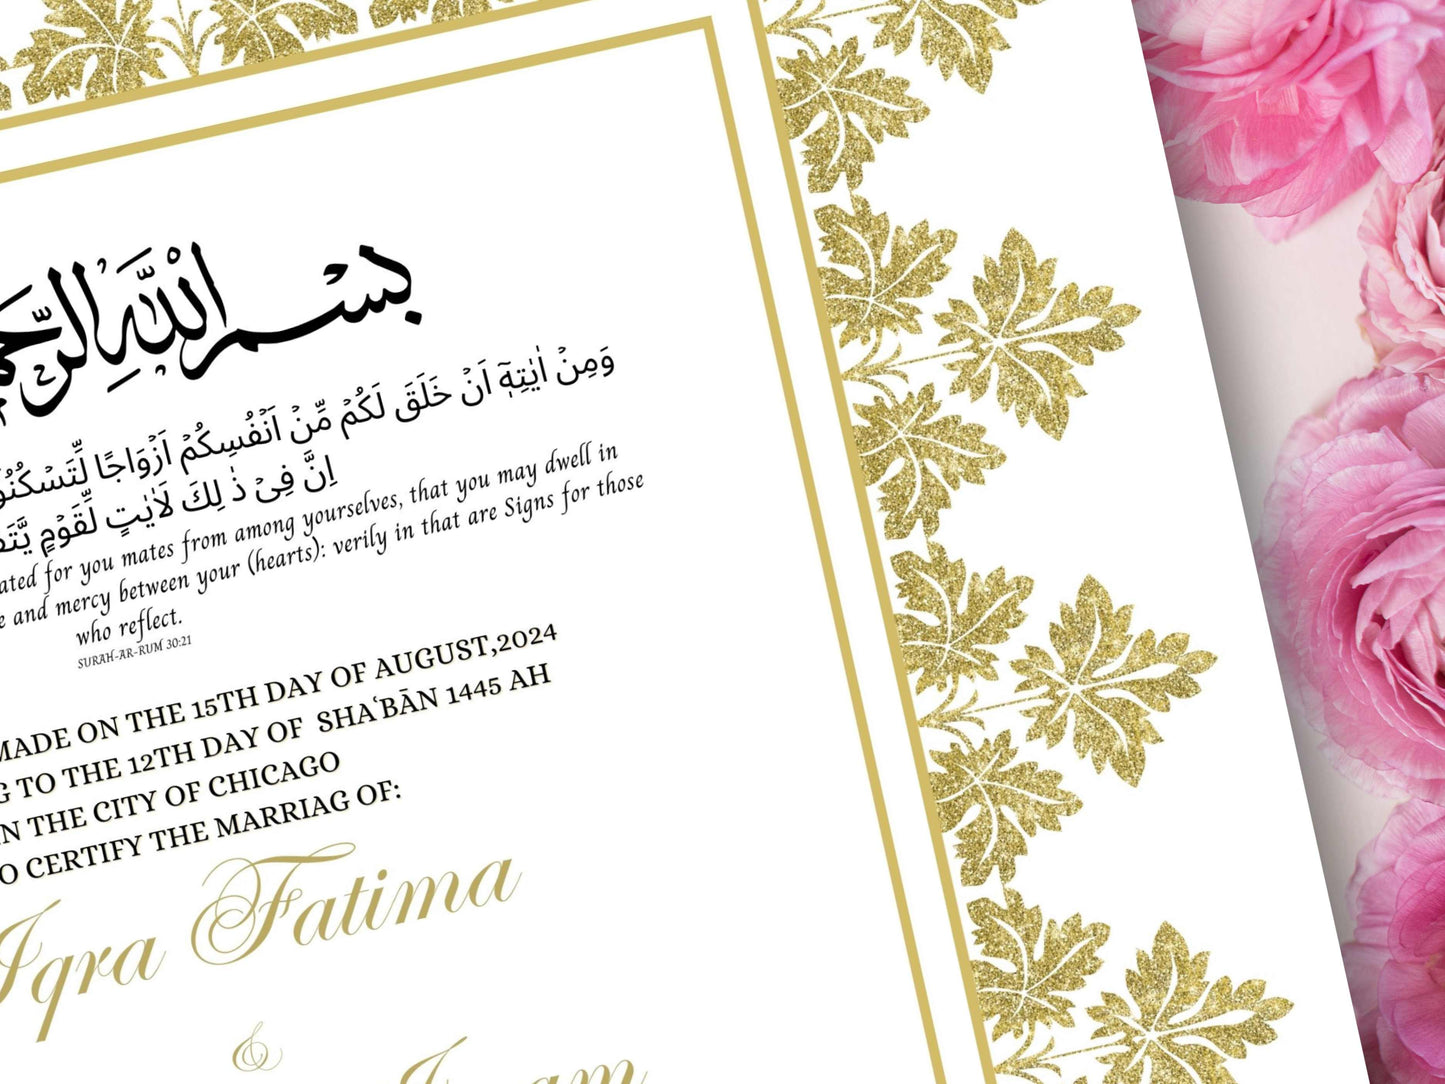 بِسْمِ اللَّهِ
وَمِنْ اٰيٰتِهٖٓ اَنْ خَلَقَ لَكُمْ مِّنْ اَنْفُسِكُمْ اَزْوَاجًا
اِنَّ فِىْ ذٰ لِكَ لَاٰيٰتٍ لِّقَوْمٍ
for you mates from among yourselves, that you may dwell in
and mercy between your (hearts): verily in that are Signs for those
who reflect.
SURAH-AR-RUM 30:21
MADE ON THE 15TH DAY OF AUGUST,2024
TO THE 12TH DAY OF SHAʿBĀN 1445 AH
THE CITY OF CHICAGO
CERTIFY THE MARRIAG OF:
Iqra Fatima
&